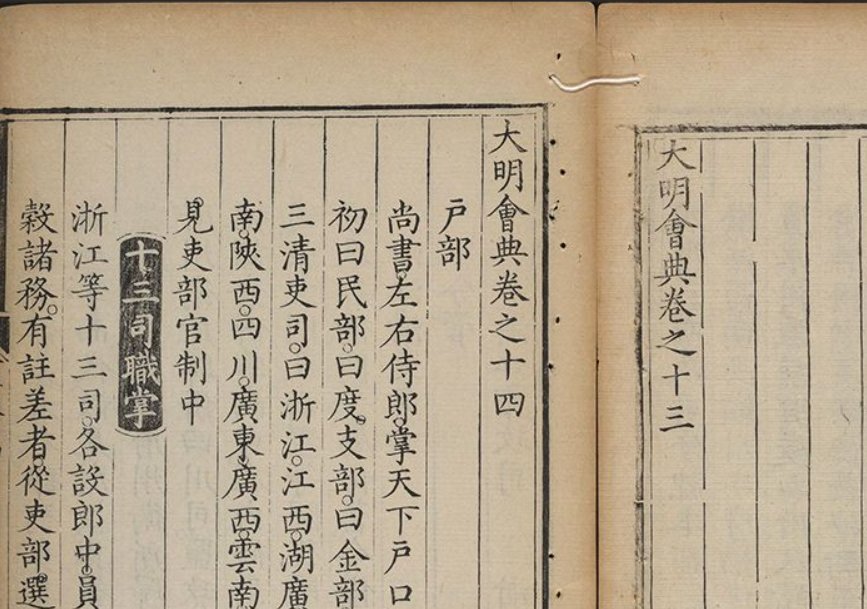 大明會典卷之十三
大明會典卷之十四
户部
尚書左右侍郎。掌天下户口
初曰民部。曰度支部。曰金部
三清吏司。曰浙江。江西。湖廣
南。陝西。四川。廣東。廣西。雲南
見吏部官制中
十三司職掌
浙江等十三司。各設郎中。員
穀諸務。有註差者從吏部選